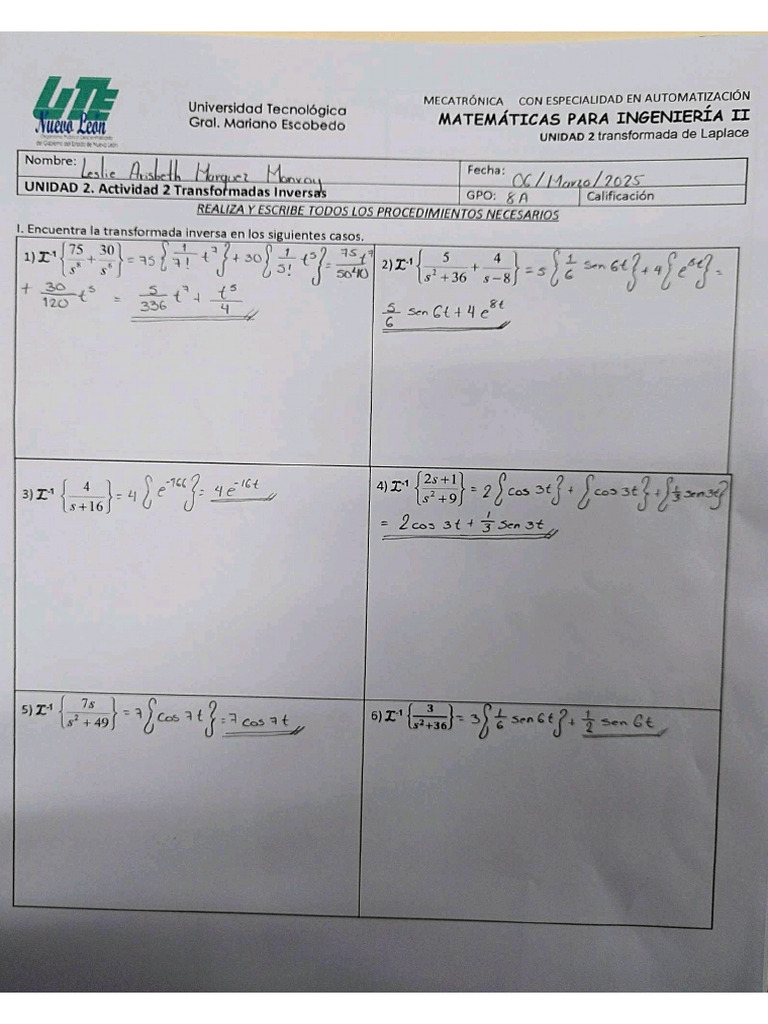 UTE
Nuevo León
Universidad Tecnológica
Gral. Mariano Escobedo
MECATRÓNICA CON ESPECIALIDAD EN AUTOMATIZACIÓN
MATEMÁTICAS PARA INGENIERÍA II
UNIDAD 2 transformada de Laplace
Nombre: Leslie Arisbeth Marquez Monroy
Fecha: 06/Marzo/2025
UNIDAD 2. Actividad 2 Transformadas Inversas
GPO: 8A Calificación
REALIZA Y ESCRIBE TODOS LOS PROCEDIMIENTOS NECESARIOS
I. Encuentra la transformada inversa en los siguientes casos.
1) ℒ⁻¹ {75/s⁸ + 30/s⁶} = 75 {1/7! t⁷} + 30 {1/5! t⁵} = 75t⁷/5040
+ 30/120 t⁵ = 5/336 t⁷ + t⁵/4
2) ℒ⁻¹ {5/(s² + 36) + 4/(s − 8)} = 5 {1/6 sen 6t} + 4 {e⁸ᵗ} =
5/6 sen 6t + 4 e⁸ᵗ
3) ℒ⁻¹ {4/(s + 16)} = 4 {e⁻¹⁶⁶} = 4e⁻¹⁶ᵗ
4) ℒ⁻¹ {(2s + 1)/(s² + 9)} = 2 {cos 3t} + {cos 3t} + {1/3 sen 3t}
= 2 cos 3t + 1/3 sen 3t
5) ℒ⁻¹ {7s/(s² + 49)} = 7 {cos 7t} = 7 cos 7t
6) ℒ⁻¹ {3/(s² + 36)} = 3 {1/6 sen 6t} + 1/2 sen 6t